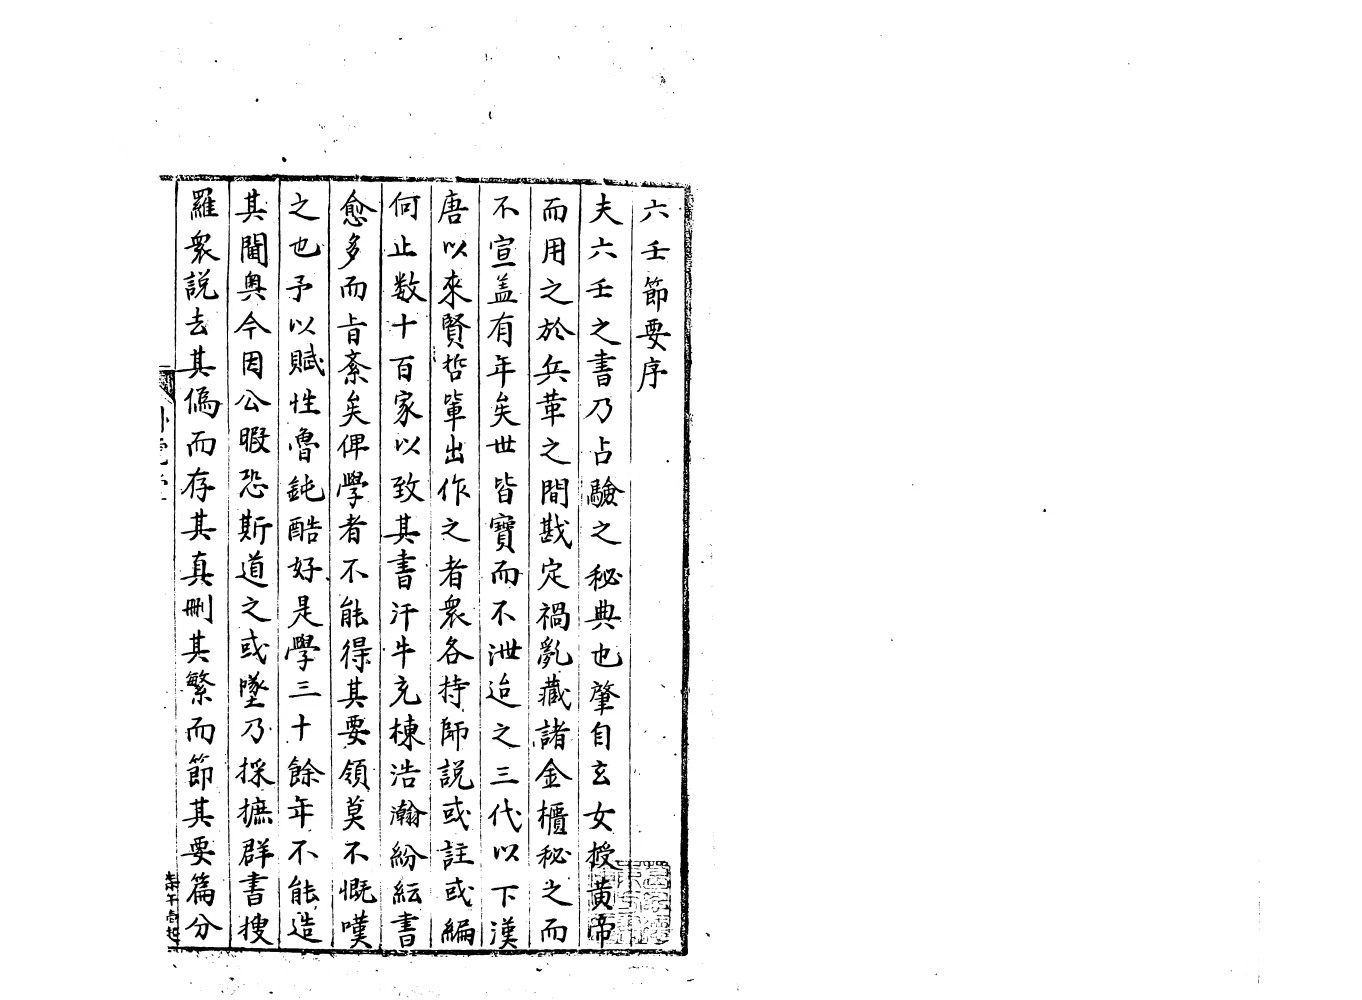 六壬節要序
夫六壬之書乃占驗之秘典也肇自玄女授黄帝
而用之於兵革之間戡定禍亂藏諸金櫃秘之而
不宣盖有年矣世皆寶而不泄迨之三代以下漢
唐以來賢哲軰出作之者衆各持師説或註或編
何止数十百家以致其書汗牛充棟浩瀚紛紜書
愈多而旨紊矣俾學者不能得其要領莫不慨嘆
之也予以賦性魯鈍酷好是學三十餘年不能造
其閫奥今因公暇恐斯道之或墜乃採摭群書搜
羅衆説去其偽而存其真删其繁而節其要篇分